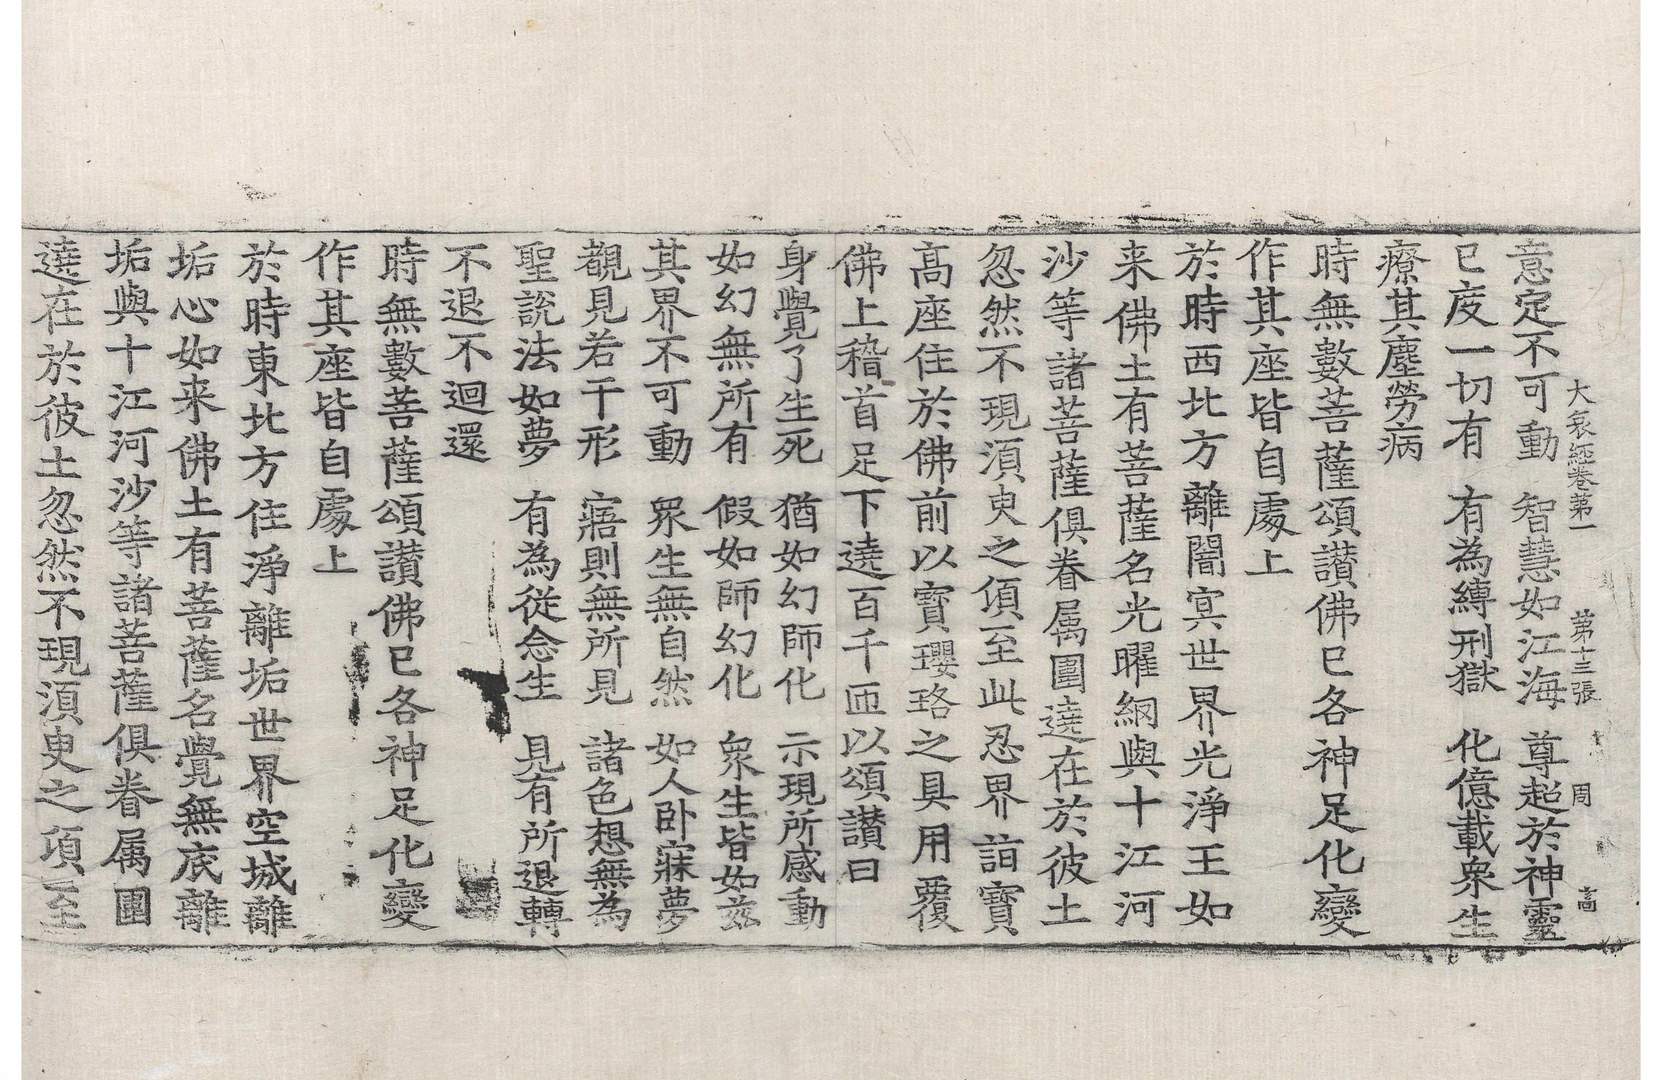 大哀經卷第一　第十三張　周　高
意定不可動　智慧如江海　尊超於神靈
已度一切有　有為縛刑獄　化億載衆生
療其塵勞病
時無數菩薩頌讃佛已各神足化變
作其座皆自處上
於時西北方離闇冥世界光淨王如
来佛土有菩薩名光曜網與十江河
沙等諸菩薩俱眷属圍遶在於彼土
忽然不現須臾之頃至此忍界詣寶
髙座住於佛前以寶瓔珞之具用覆
佛上稽首足下遶百千匝以頌讃曰
身覺了生死　猶如幻師化　示現所感動
如幻無所有　假如師幻化　衆生皆如茲
其界不可動　衆生無自然　如人卧寐夢
覩見若干形　寤則無所見　諸色想無為
聖說法如夢　有為從念生　見有所退轉
不退不迴還
時無數菩薩頌讃佛已各神足化變
作其座皆自處上
於時東北方住淨離垢世界空城離
垢心如来佛土有菩薩名覺無底離
垢與十江河沙等諸菩薩俱眷属圍
遶在於彼土忽然不現須臾之頃至